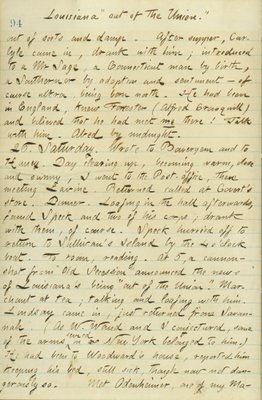 94
Louisiana "out of the Union."
out of sorts and damp. After supper, Car-
lyle came in, drank with him; introduced
to a Mr Sage, a Connecticut man by birth,
a Southerner by adoption and sentiment — of
course ultra, being born north. He had been
in England, knew Forrester (Alfred Crowquill)
and believed that he had met me there! Talk
with him. Abed by midnight.
26. Saturday. Wrote to Boweryem and to
Haney. Day clearing up, becoming warm, clear
and sunny, I went to the Post office, then
meeting Lavine. Returned called at Covert's
store. Dinner. Loafing in the hall afterwards,
joined Speck and two of his corps; drank
with them, of course. Speck hurried off to
return to Sullivan's Island by the 4 o'clock
boat. My room, reading. At 5, a cannon-
shot from "Old Secession" announced the news
of Louisiana's being "out of the Union." Mar-
chant at tea; talking and loafing with him.
Lindsay came in, just returned from Savan-
nah. (As W. Waud and I conjectured, some
of the arms, seized in New York belonged to him.)
He had been to Woodward's house, reported him
keeping his bed, still sick, though now not dan-
gerously so. Met Odenheimer, one of my Ma-